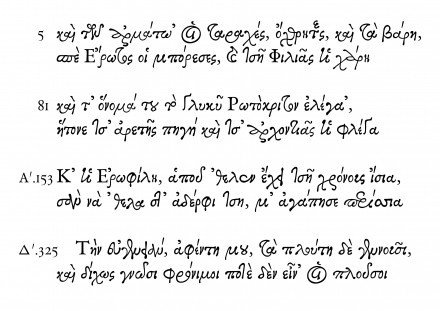 5 καὶ τῶν ἀρμάτω' οἱ ταραχές, ὄχθρητες, καὶ τὰ βάρη,
τοῦ Ἔρωτος οἱ μπόρεσες, καὶ τσῆ Φιλιᾶς ἡ χάρη
81 καὶ τ' ὄνομά του τὸ γλυκὺ Ρωτόκριτον ἐλέγα',
ἤτονε τσ' ἀρετῆς πηγὴ καὶ τσ' ἀρχοντιᾶς ἡ φλέγα
Α΄.153 Κ' ἡ Ἐρωφίλη, ἀποὺ 'θελεν ἔχει τσῆ χρόνους ἴσια,
σὰν νὰ 'θελα ἀδέρφι τση, μ' ἀγάπησε περίσσια
Δ΄.325 Τὴν εὐγενειά, ἀφέντη μου, τὰ πλούτη δὲ γεννοῦσι,
καὶ δίχως γνῶσι φρόνιμοι ποτὲ δὲν εἶν' οἱ πλοῦσοι